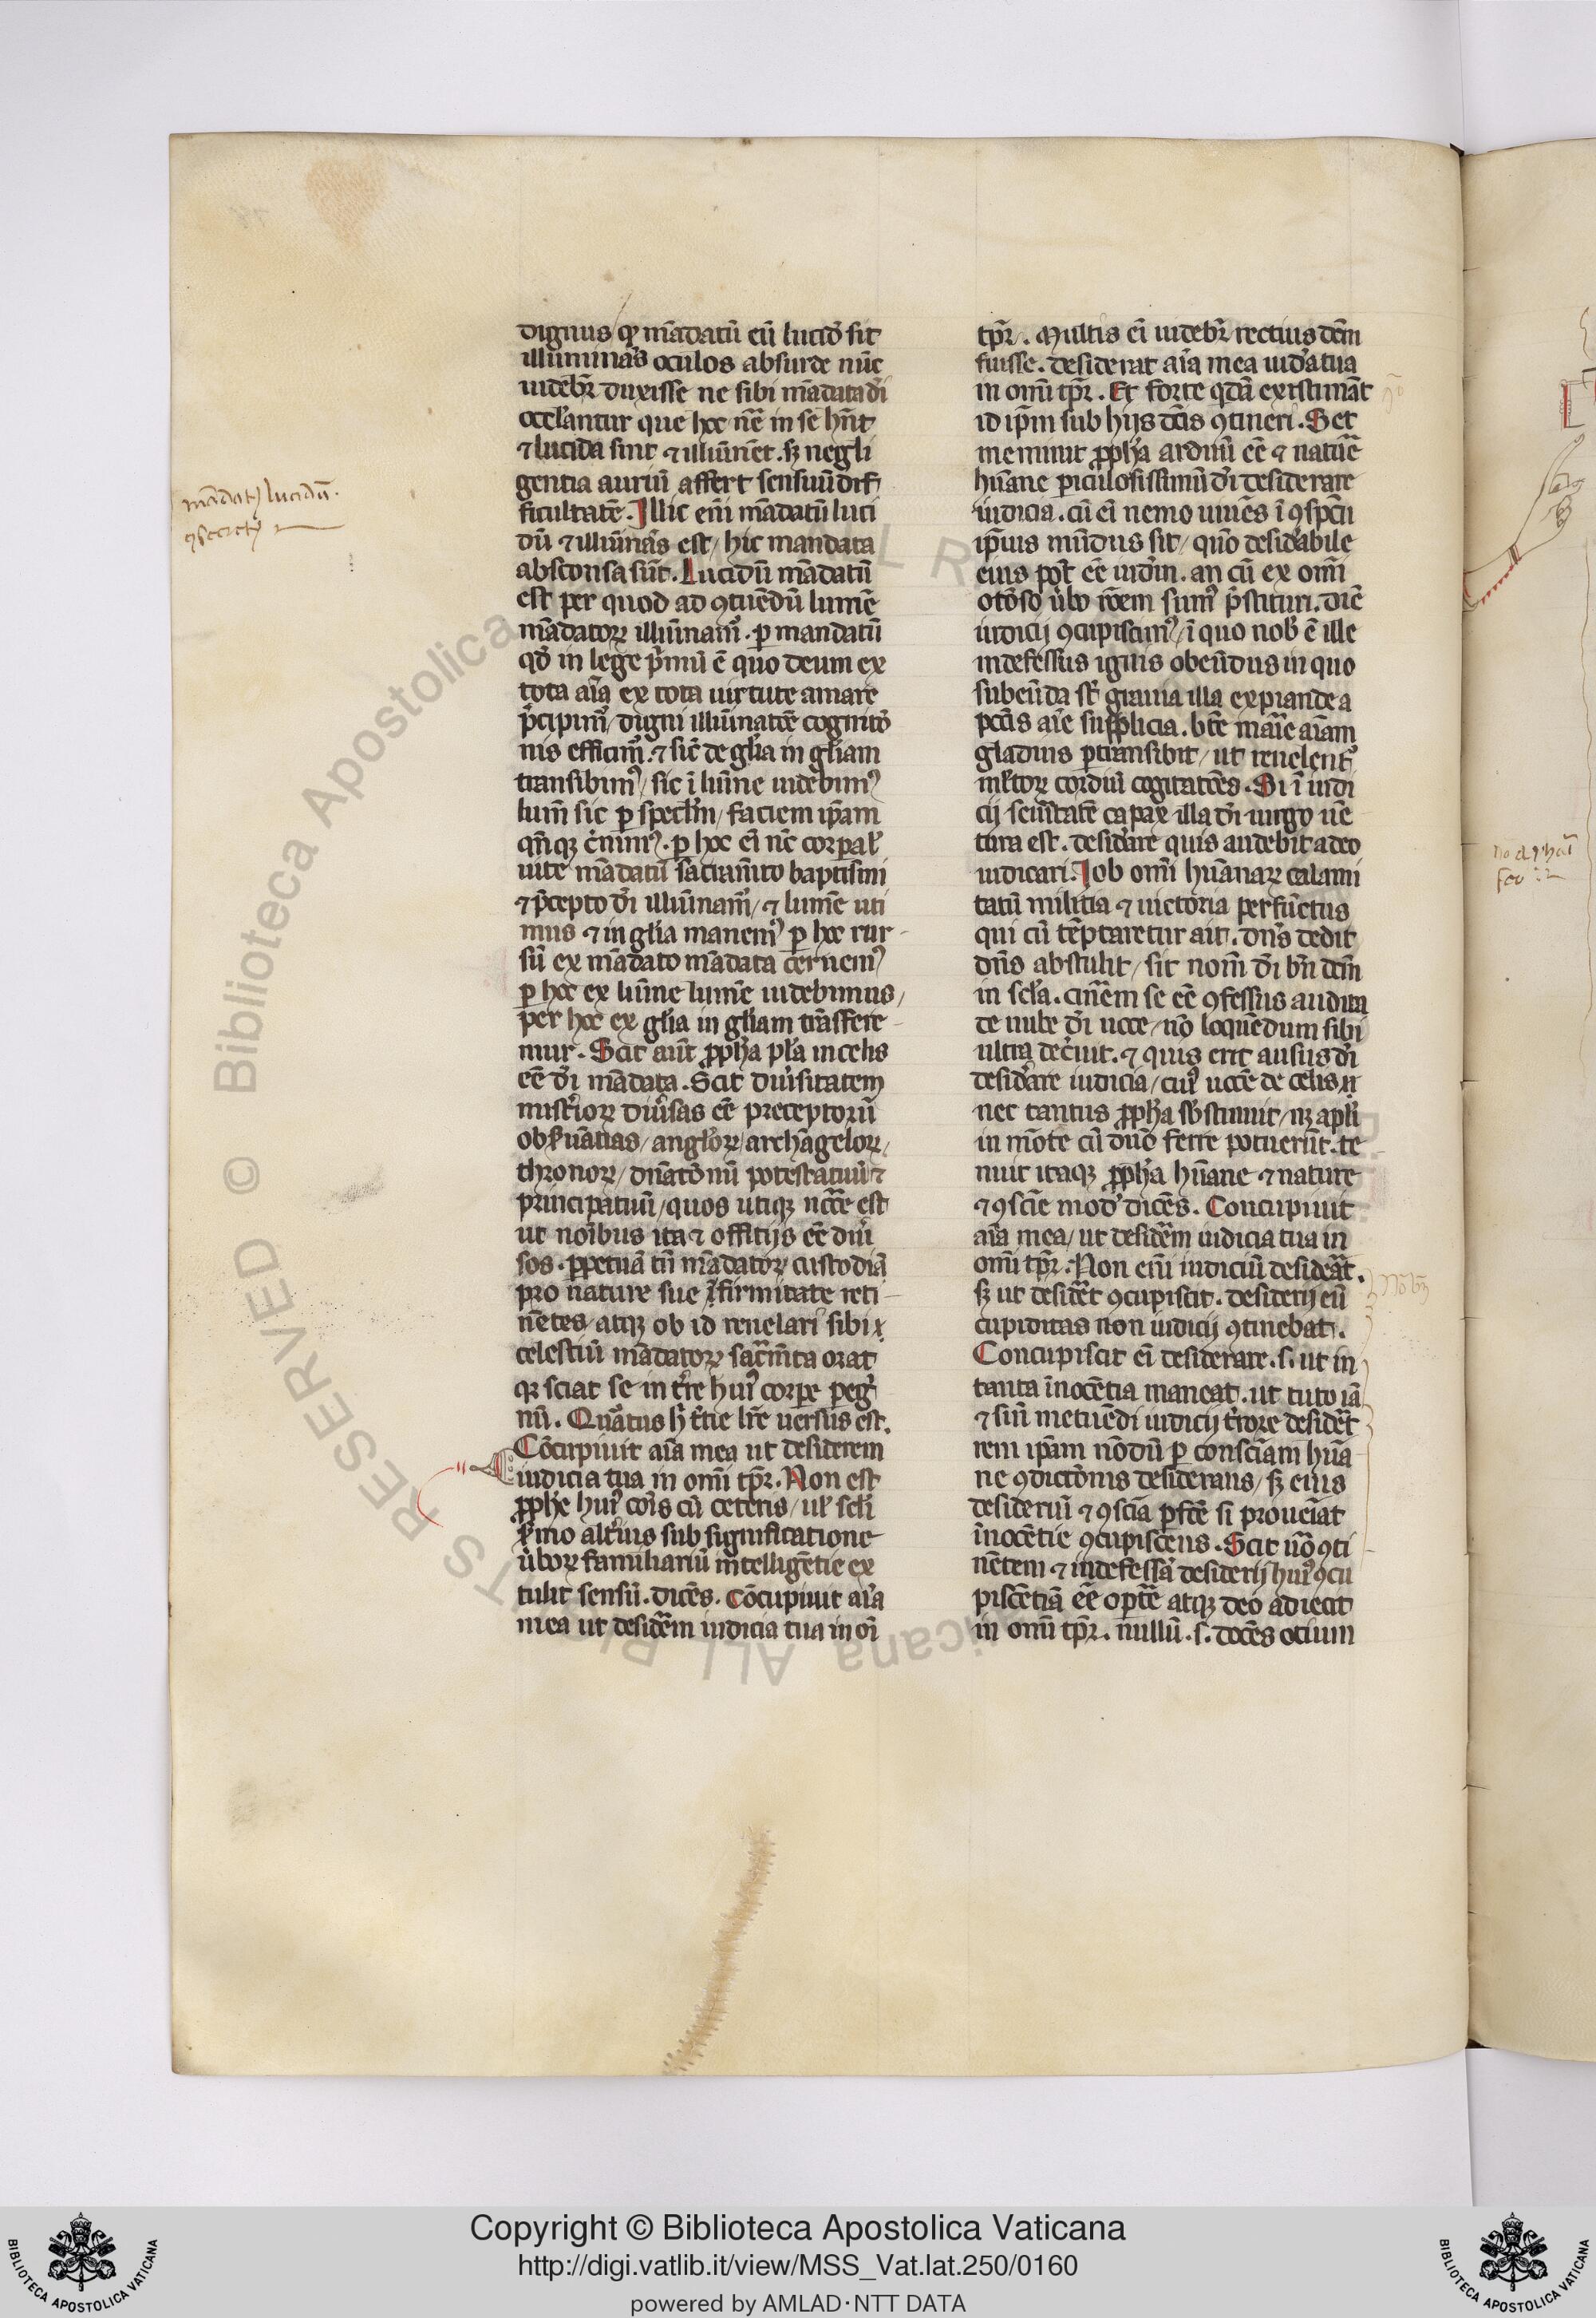 dignus qͥ mādatū eū lucidū sit
illūminās oculos absurde nūc
uidebr̄ duxisse ne sibi mādata dī
oceľantur que hoc nc̄e in se hn̄t
⁊ lucida sint ⁊ illūinēt. sꝫ negli
gentia auriū affert sensuū dif
ficultatē. Illic em̄ mādatū luci
dū ⁊ illūinās est / hic mandata
absconsa sūt. Lucidū mādatū
est per quod ad ꝯtuēdū lumē
mādatoꝝ illūinamꝰ. ꝑ mandatū
qď in lege pͥmū ē quo deum ex
tota aīa ex tota uirtute amare
p̄cipimꝰ / digni illūinatōe cognitō
nis efficimꝰ. ⁊ sic̄ de gľia in gľiam
transibimꝰ / sic ī lum̄ne uidebimꝰ
lum̄ sic ꝑ specľm / faciem ip̄am
qn̄qꝫ c̄nimꝰ. ꝑ hoc ei nc̄ corꝑaľ
uite mādatū sacram̄to baptismi
⁊ p̄cepto dī illūinamꝰ / ⁊ lumē uti
mus ⁊ in gľia manemꝰ ꝑ hoc rur
sū ex mādato mādata cernemꝰ
ꝑ hoc ex lum̄ne lumē uidebimus /
per hoc ex gľia in gľiam trāsfere
mur. Scit aūt ꝓpħa pľa in celis
eē dī mādata. Scit diuͥsitatem
mist̄ioꝝ diuͥsas eē preceptorū
obẜuātias / angľoꝝ / archāgeloꝝ /
thronoꝝ / dn̄atōnū potestatuū ⁊
principatuū / quos utiqꝫ nc̄ce est
ut noībus ita ⁊ offitijs eē diuͥ
sos. ꝑpetuā tn̄ mādatoꝝ custodiā
pro nature sue īfirmitate reti
nētes / atqꝫ ob id reuelari sibi
celestiū mādatoꝝ sacr̄m̄ta orat
qꝛ sciat se in t̄re huiꝰ corꝑe peg̓
nū. Quātus ħ t̄tie lr̄e uersus est.
Cōcupiuit aīa mea ut desiderem
iudicia tua in om̄i tp̄r. Non est
ꝓpħe huiꝰ coīs cū ceteris / uľ scľi
ẜmo alt̄ius sub significatione
ūboꝝ familiariū intelligētie ex
tulit sensū. dicēs. Cōcupiuit aīa
mea ut desidēm iudicia tua in oī
tp̄r. Multis ei uidebr̄ rectius dc̄m
fuisse. desiderat aīa mea iud̓a tua
in om̄i tp̄r. Et forte qͥdā existimāt
id ip̄m sub hijs dc̄is ꝯtineri. Set
meminit ꝓpħa arduū eē ⁊ natur̄e
hūane ꝑiculosissimū dī desiderare
iudicia. cū ei nemo uiuēs ī ꝯspc̄u
ip̄ius mūdus sit / quō desid̓abile
eius pot̄ eē iudm̄. an cū ex om̄i
otōso ūbo rōem sumꝰ p̄stituri. diē
iudicij ꝯcupiscimꝰ / ī quo nob̓ ē ille
indefessus ignis obeūdus in quo
subeūda sť grauia illa expiande a
pc̄is aīe supplicia. bt̄e marīe aīam
gladius ꝑtransibit / ut reuelent̄
ml̄toꝝ cordiū cogitatōes. Si ī iudi
cij seūitatē capax illa dī uirgo uē
tura est. desid̓are quis audebit a deo
iudicari. Job om̄i hūanaꝝ calami
tatū militia ⁊ uictoria perfūctus
qui cū tēptaretur ait. dn̄s dedit
dn̄s abstulit / sit nom̄ dī bn̄dc̄m
in scľa. cinēm se eē ꝯfessus audita
de nube dī uoce / nō loquēdum sibi
ultra dec̄uit. ⁊ quis erit ausus dī
desid̓are iudicia / cuiꝰ uocē de celis
nec tantus ꝓpħa sb̓stinuit / nꝫ apľi
in mōte cū dnō ferre potuerūt. te
nuit itaqꝫ ꝓpħa hūane ⁊ nature
⁊ ꝯscīe mod̓ dicēs. Concupiuit
aīa mea / ut desidēm iudicia tua in
om̄i tp̄r. Non em̄ iudiciū desideāt.
sꝫ ut desidēt ꝯcupiscit. desiderij eū
cupiditas non iudicij ꝯtinebat.
Concupiscit ei desiderare. s. ut in
tanta īnocētia maneat. ut tuto iā
⁊ sin̄ metuēdi iudicij t̄rore desidēt
rem ip̄am nōdū ꝑ consciam hūa
ne ꝯdictōnis desiderans / sꝫ eius
desideriū ⁊ ꝯscīa ꝑfc̄e si proueīat
īnocētie ꝯcupiscens. Scit uō ꝯti
nētem ⁊ indefessā desiderij huiꝰ ꝯcu
piscētiā eē oꝑt̄e atqꝫ deo adiecit
in om̄i tp̄r. nullū. s. docēs otium
mādatꝫ lucidū.
ꝯsecretꝫ
Copyright © Biblioteca Apostolica Vaticana
http://digi.vatlib.it/view/MSS_Vat.lat.250/0160
powered by AMLAD·NTT DATA
BIBLIOTECA APOSTOLICA VATICANA
BIBLIOTECA APOSTOLICA VATICANA